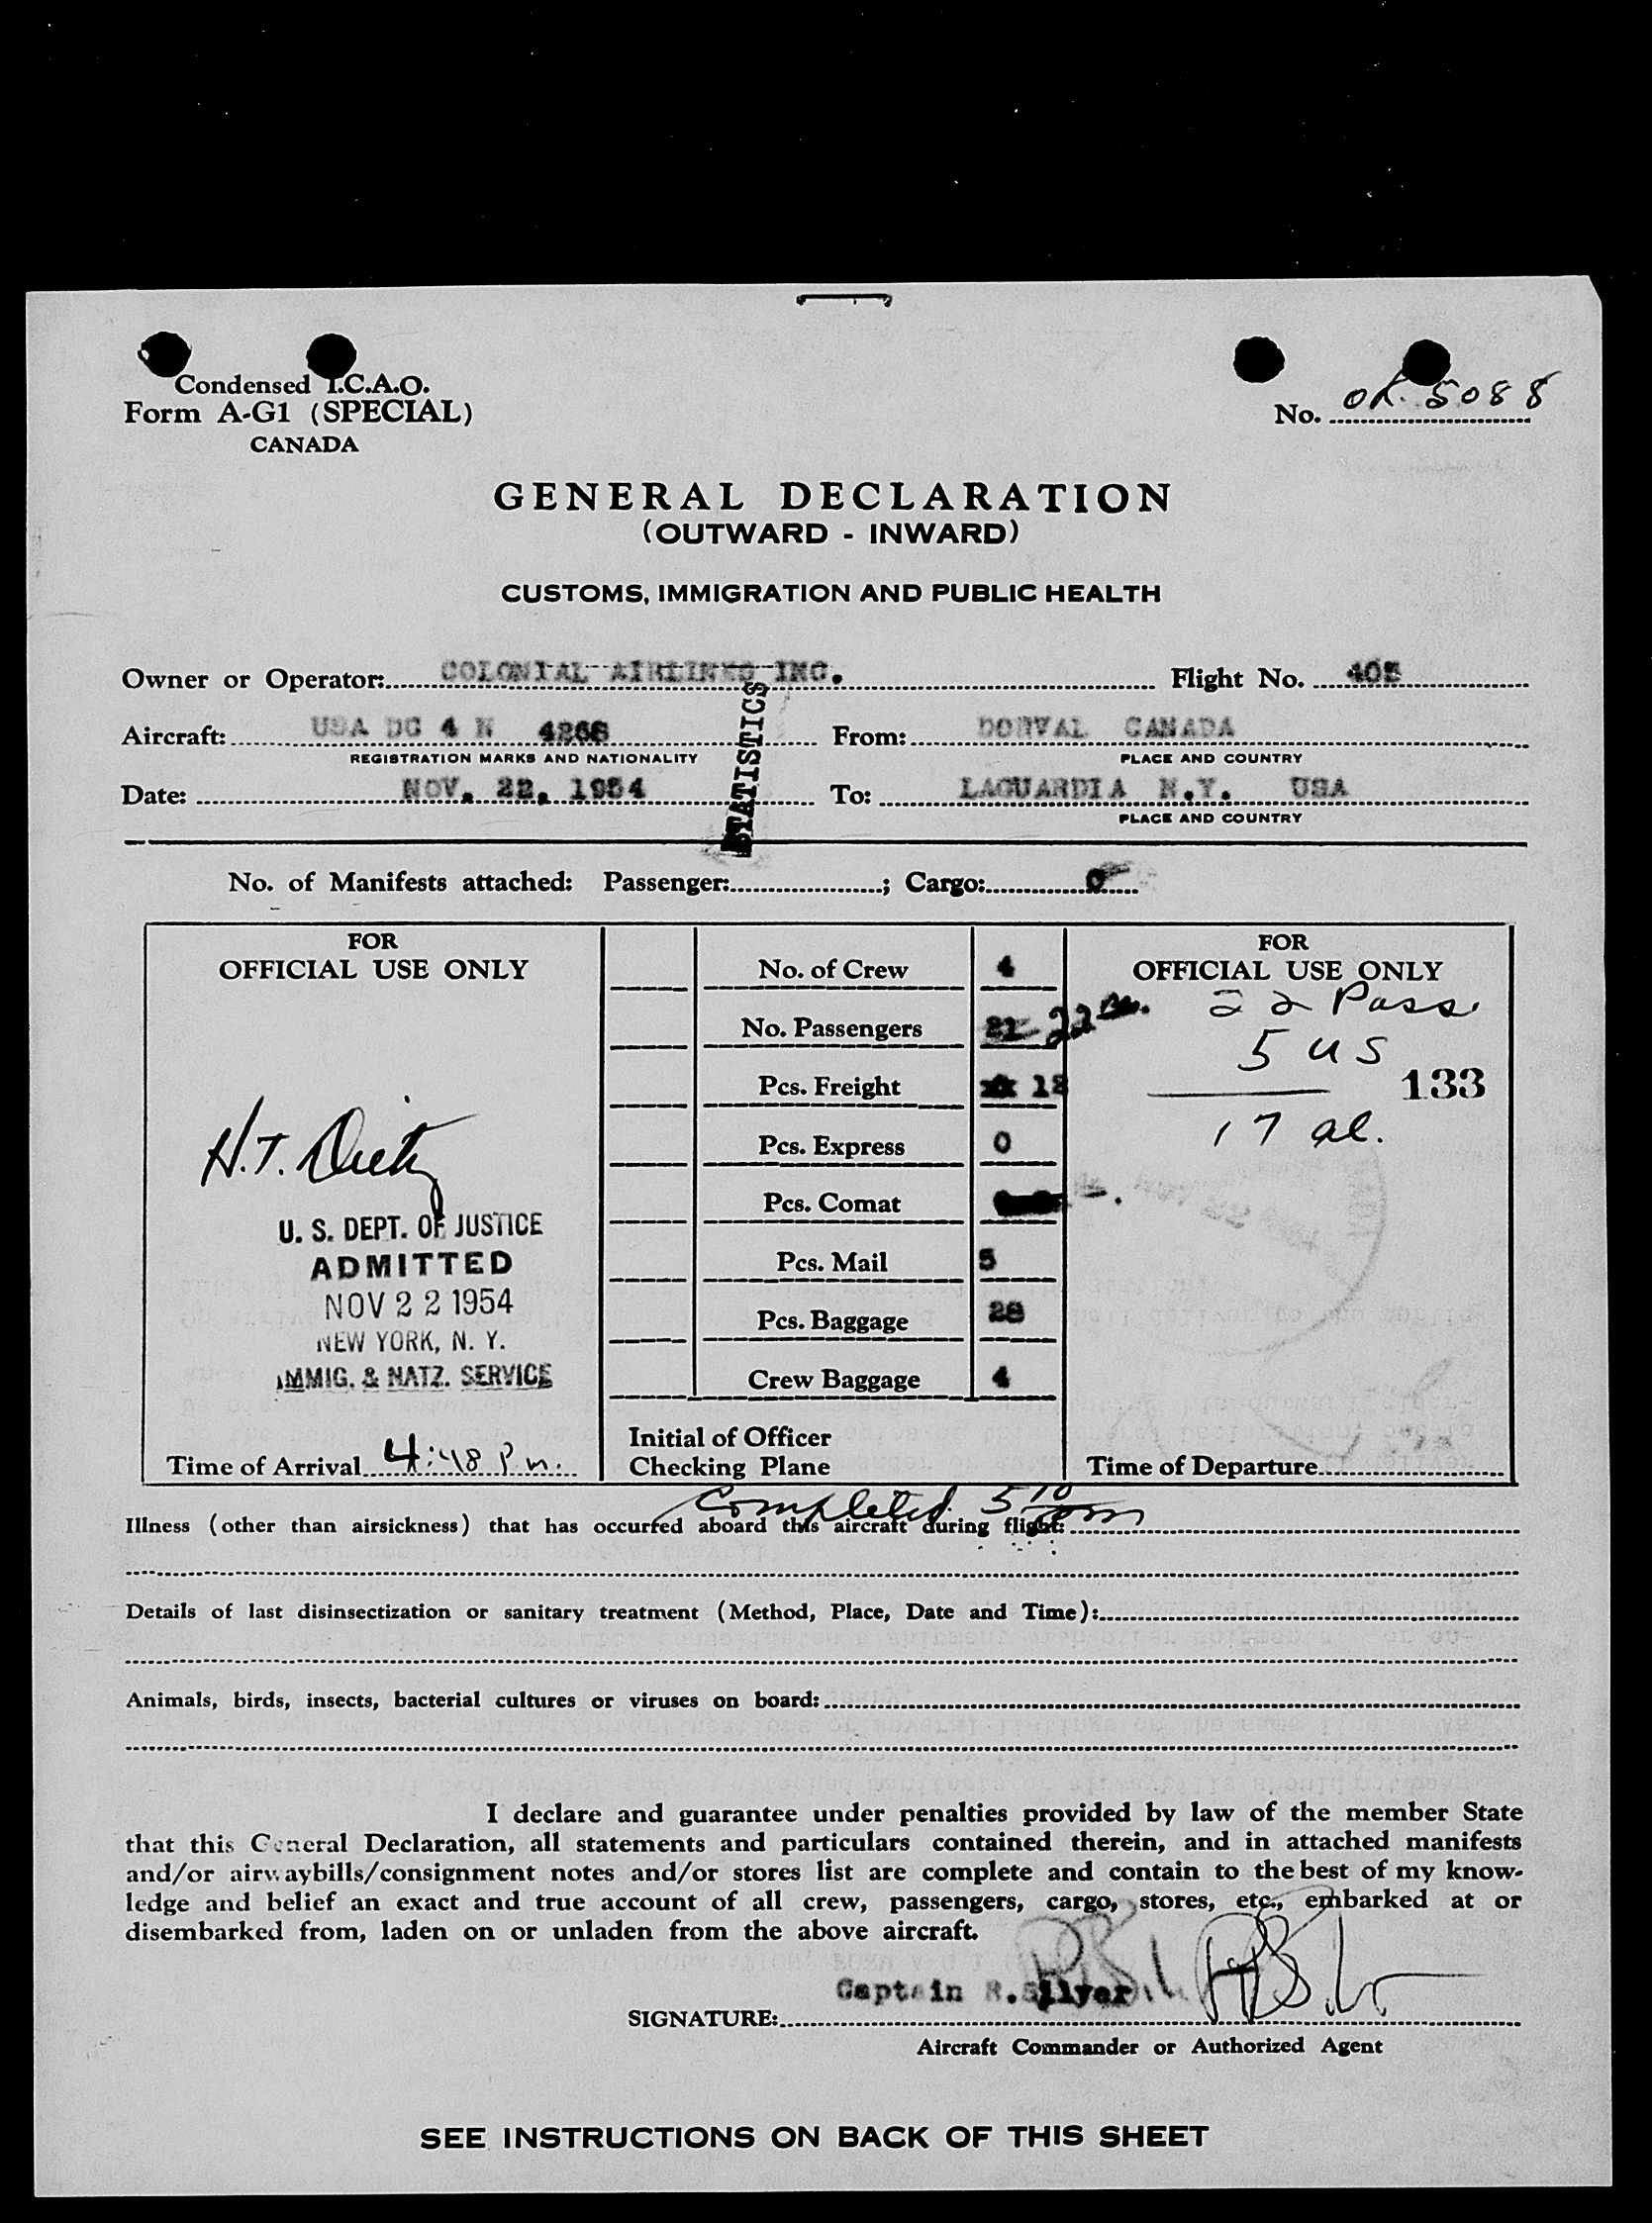 Condensed I.C.A.O.
Form A-G1 (SPECIAL)
CANADA
No. OK. 5088
GENERAL DECLARATION
(OUTWARD - INWARD)
CUSTOMS, IMMIGRATION AND PUBLIC HEALTH
Owner or Operator: COLONIAL AIRLINES INC. Flight No. 405
Aircraft: USA DC 4 N 4268 From: DORVAL CANADA
REGISTRATION MARKS AND NATIONALITY PLACE AND COUNTRY
Date: NOV. 22, 1954 To: LAGUARDIA N.Y. USA
PLACE AND COUNTRY
STATISTICS
No. of Manifests attached: Passenger: ; Cargo: 0
FOR
OFFICIAL USE ONLY
H.T. Dietz
U. S. DEPT. OF JUSTICE
ADMITTED
NOV 2 2 1954
NEW YORK, N. Y.
IMMIG. & NATZ. SERVICE
Time of Arrival 4:48 P.m.
No. of Crew 4
No. Passengers 21 22
Pcs. Freight 12
Pcs. Express 0
Pcs. Comat
Pcs. Mail 5
Pcs. Baggage 28
Crew Baggage 4
Initial of Officer
Checking Plane
FOR
OFFICIAL USE ONLY
22 Pass
5 US
133
17 al.
Time of Departure
Completed 5 10 pm
Illness (other than airsickness) that has occurred aboard this aircraft during flight:
Details of last disinsectization or sanitary treatment (Method, Place, Date and Time):
Animals, birds, insects, bacterial cultures or viruses on board:
I declare and guarantee under penalties provided by law of the member State
that this General Declaration, all statements and particulars contained therein, and in attached manifests
and/or airwaybills/consignment notes and/or stores list are complete and contain to the best of my know-
ledge and belief an exact and true account of all crew, passengers, cargo, stores, etc., embarked at or
disembarked from, laden on or unladen from the above aircraft.
Captain R. Silver
SIGNATURE:
Aircraft Commander or Authorized Agent
SEE INSTRUCTIONS ON BACK OF THIS SHEET